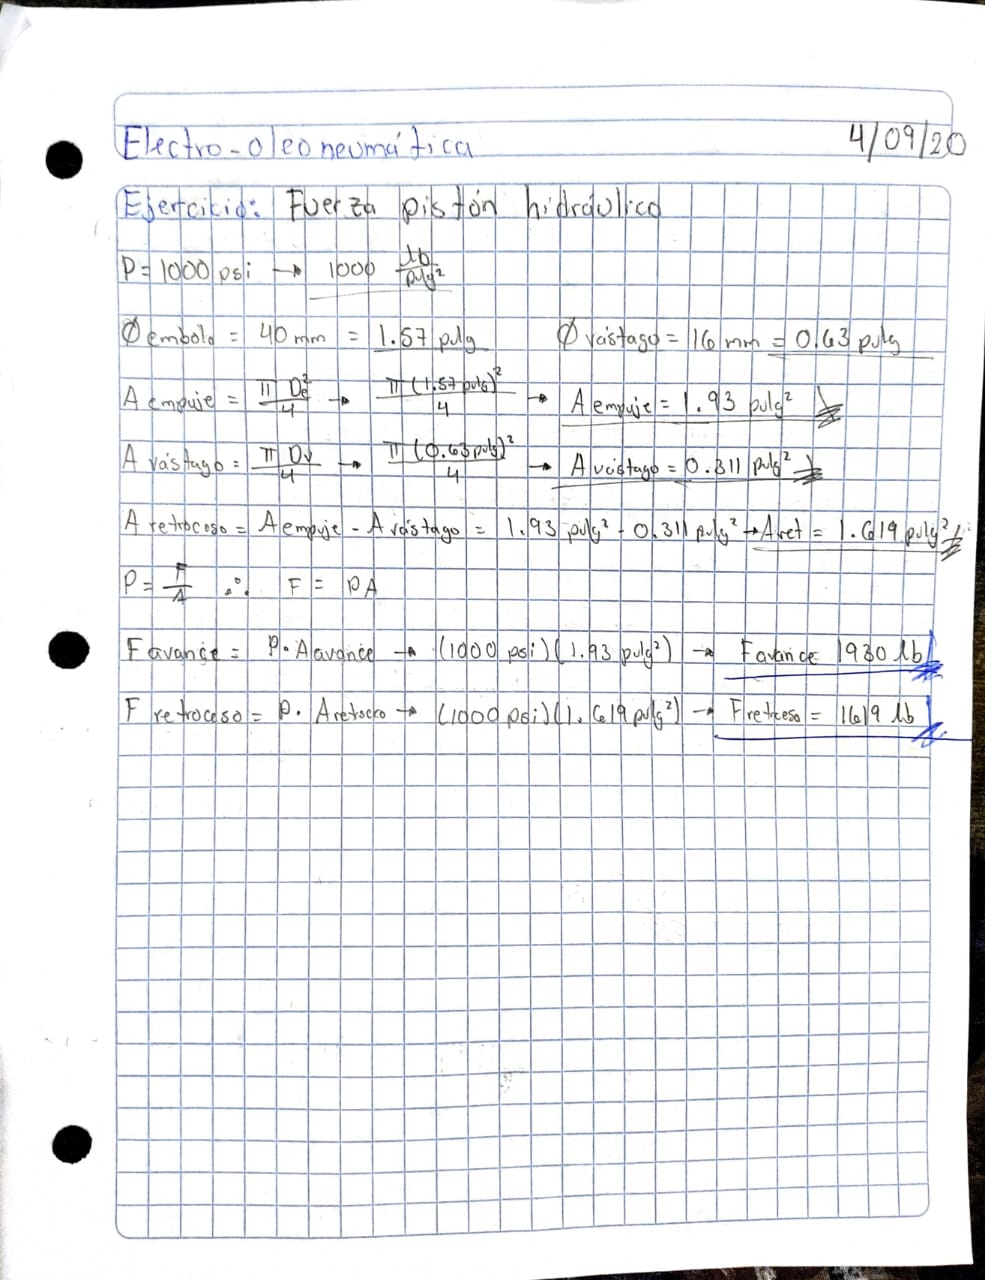 Electro-oleoneumática 4/09/20
Ejercicio: Fuerza pistón hidráulico
P = 1000 psi → 1000 lb/pulg²
Ø embolo = 40 mm = 1.57 pulg Ø vástago = 16 mm = 0.63 pulg
A empuje = π De²/4 → π (1.57 pulg)²/4 → A empuje = 1.93 pulg²
A vástago = π Dv/4 → π (0.63 pulg)²/4 → A vástago = 0.311 pulg²
A retroceso = A empuje - A vástago = 1.93 pulg² - 0.311 pulg² → Aret = 1.619 pulg²
P = F/A ∴ F = PA
F avance = P · A avance → (1000 psi)(1.93 pulg²) → F avance = 1930 lb
F retroceso = P · A retroceso → (1000 psi)(1.619 pulg²) → F retroceso = 1619 lb